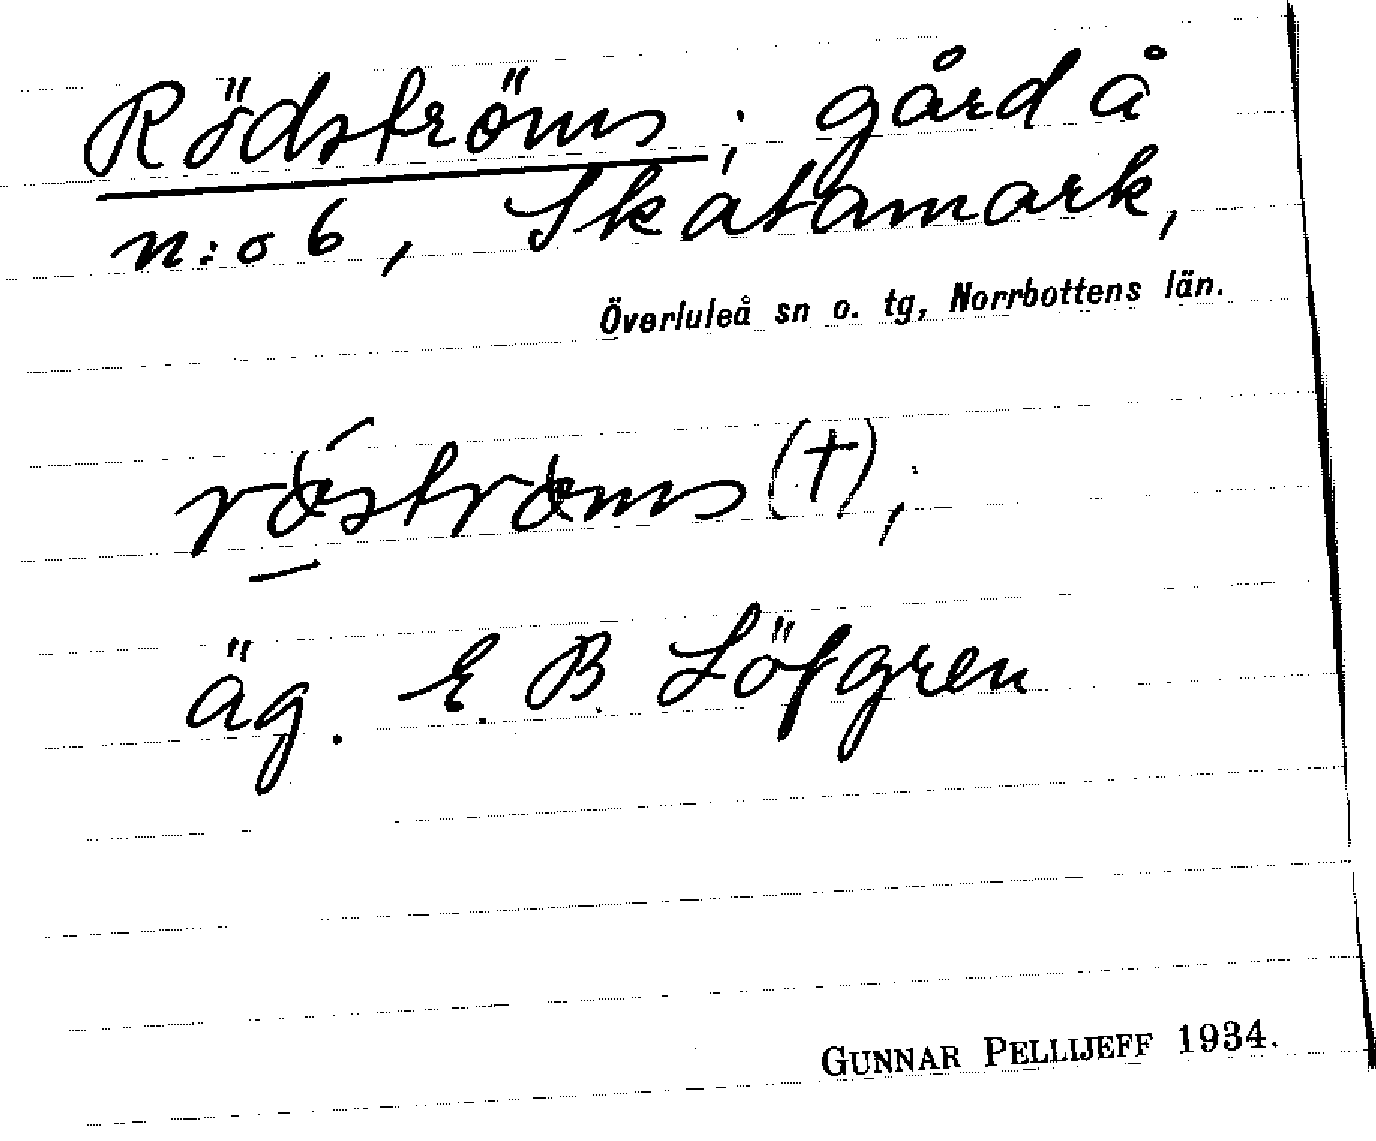 Rödströms ; gård å
n:o 6 , Skatamark,
Överluleå sn o. tg, Norrbottens län.
(†) ;
äg. E. B. Löfgren
GUNNAR PELLIJEFF 1934.